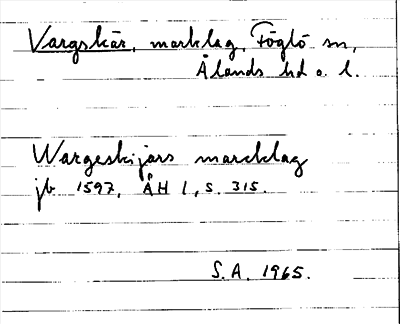 Vargskär, marklag, Föglö sn,
Ålands hd o. l.
Wargeskijärs marcklag
jb 1597, ÅH 1, s. 315.
S.A. 1965.